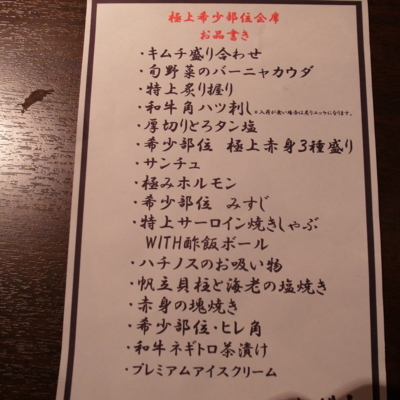 極上希少部位会席
お品書き
・キムチ盛り合わせ
・旬野菜のバーニャカウダ
・特上炙り握り
・和牛角ハツ刺し ※入荷が無い場合は炙りユッケになります。
・厚切りとろタン塩
・希少部位 極上赤身3種盛り
・サンチュ
・極みホルモン
・希少部位 みすじ
・特上サーロイン焼きしゃぶ
WITH酢飯ボール
・ハチノスのお吸い物
・帆立貝柱と海老の塩焼き
・赤身の塊焼き
・希少部位・ヒレ角
・和牛ネギトロ茶漬け
・プレミアムアイスクリーム